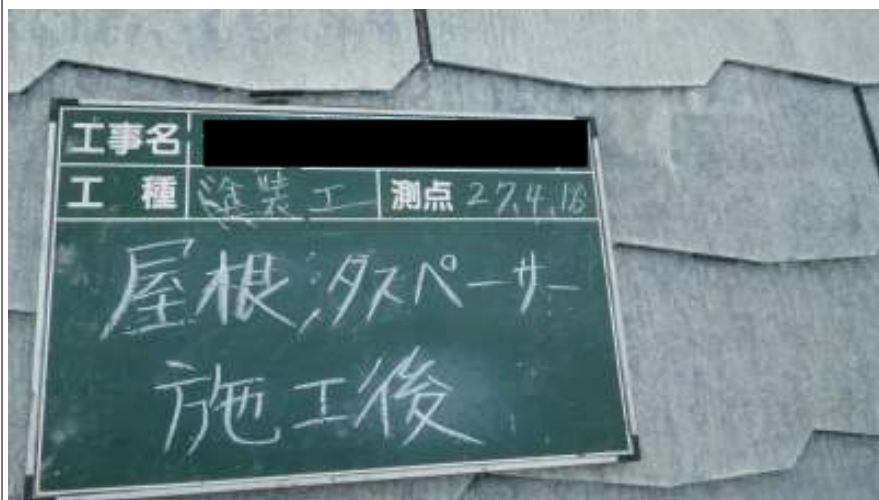 工事名
工種 塗装工 測点 27.4.16
屋根タスペーサー
施工後